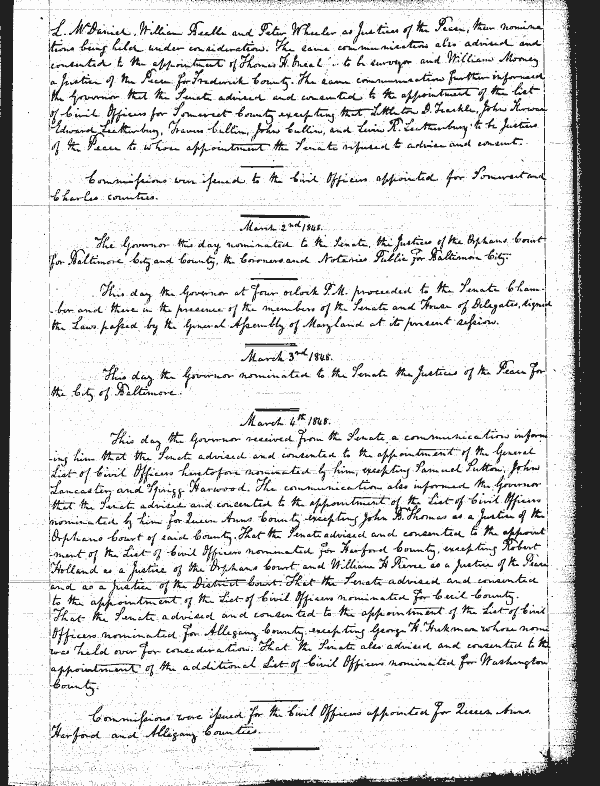 L. McDaniel, William Beall and Peter Wheeler as Justices of the Peace, their nomina
tions being held under consideration. The same communication also advised and
consented to the appointment of Thomas H. Neal to be surveyor and William Morsey
a Justice of the Peace for Frederick County. The same communication further informed
the Governor that the Senate advised and consented to the appointment of the List
of Civil Officers for Somerset County excepting that Littleton D. Teackle, John
Edward Lankenbury, Travers Cullin, John Cullin, and Levin R. to be Justices
of the Peace to whose appointment the Senate refused to advise and consent.
Commissions were issued to the Civil Officers appointed for Somerset and
Charles counties.
March 2nd 1848.
The Governor this day nominated to the Senate, the Justices of the Orphans Court
for Baltimore City and County, the Coroners and Notaries Public for Baltimore City.
This day the Governor at four oclock P.M. proceeded to the Senate Cham-
ber and there in the presence of the members of the Senate and House of Delegates, signed
the Laws passed by the General Assembly of Maryland at its present session.
March 3rd 1848.
This day the Governor nominated to the Senate the Justices of the Peace for
the City of Baltimore.
March 4th 1848.
This day the Governor received from the Senate a communication inform
ing him that the Senate advised and consented to the appointment of the General
List of Civil Officers heretofore nominated by him, excepting Samuel Sutton, John
Lancaster, and Sprigg Harwood. The communication also informed the Governor
that the Senate advised and consented to the appointment of the List of Civil Officers
nominated by him for Queen Anns County excepting John B. Thomas as a Justice of the
Orphans Court of said County. That the Senate advised and consented to the appoint
ment of the List of Civil Officers nominated for Harford County, excepting Robert
Holland as a Justice of the Orphans Court and William H. Pierce as a Justice of the Peace
and as a Justice of the District Court. That the Senate advised and consented
to the appointment of the List of Civil Officers nominated for Cecil County.
That the Senate advised and consented to the appointment of the List of Civil
Officers nominated for Allegany County excepting George W. Hickman whose nom
was held over for consideration. That the Senate also advised and consented to the
appointment of the additional List of Civil Officers nominated for Washington
County.
Commissions were issued for the Civil Officers appointed for Queen Anns
Harford and Allegany Counties.